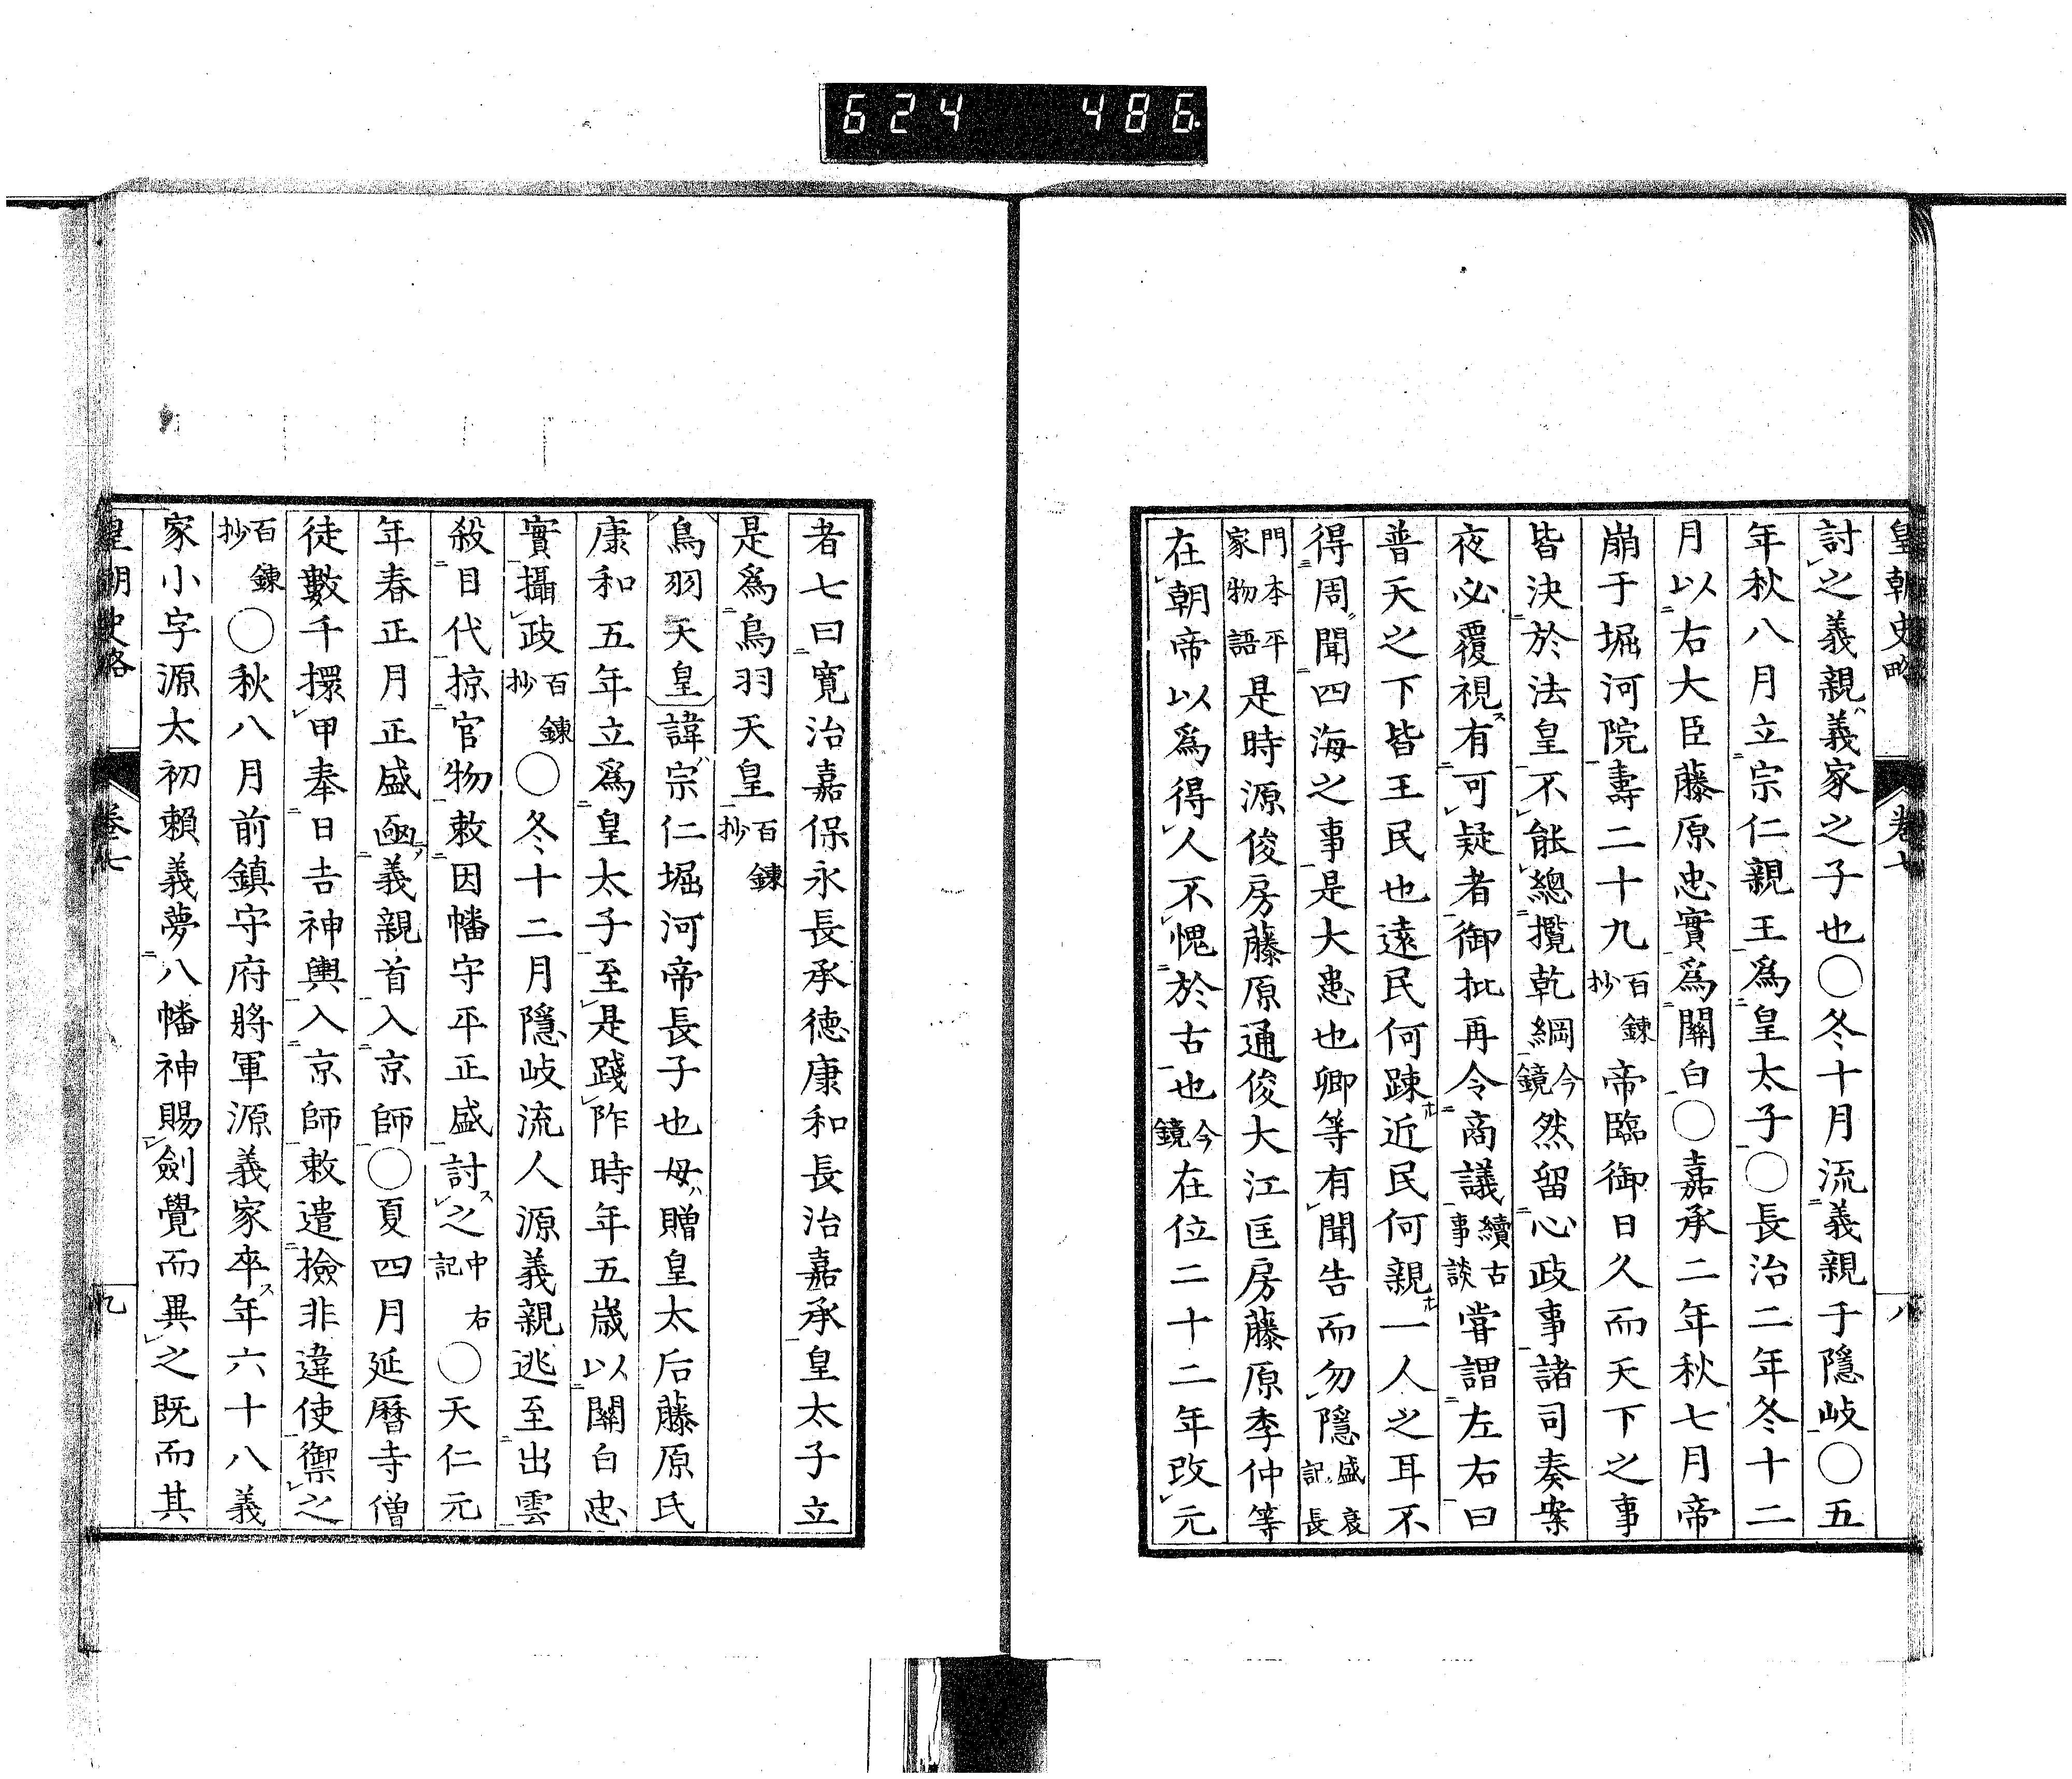 624 486
皇朝史略 卷七 八
討之義親義家之子也〇冬十月流義親于隱岐〇五
年秋八月立宗仁親王爲皇太子〇長治二年冬十二
月以右大臣藤原忠實爲關白〇嘉承二年秋七月帝
崩于堀河院壽二十九百鍊抄帝臨御日久而天下之事
皆決於法皇不能總攬乾綱今鏡然留心政事諸司奏案
夜必覆視有可疑者御批再令商議續古事談嘗謂左右曰
普天之下皆王民也遠民何踈近民何親一人之耳不
得周聞四海之事是大患也卿等有聞告而勿隱盛衰記長
門本平家物語是時源俊房藤原通俊大江匡房藤原季仲等
在朝帝以爲得人不愧於古也今鏡在位二十二年改元
者七曰寬治嘉保永長承德康和長治嘉承皇太子立
是爲鳥羽天皇百鍊抄
鳥羽天皇諱宗仁堀河帝長子也母贈皇太后藤原氏
康和五年立爲皇太子至是踐阼時年五歲以關白忠
實攝政百鍊抄〇冬十二月隱岐流人源義親逃至出雲
殺目代掠官物敕因幡守平正盛討之中右記〇天仁元
年春正月正盛凾義親首入京師〇夏四月延曆寺僧
徒數千擐甲奉日吉神輿入京師敕遣檢非違使禦之
百鍊抄〇秋八月前鎮守府將軍源義家卒年六十八義
家小字源太初賴義夢八幡神賜劍覺而異之既而其
皇朝史略 卷七 九